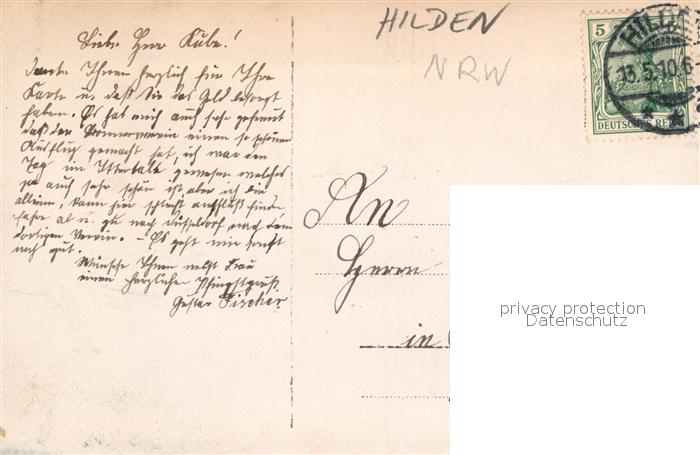 HILDEN
NRW
5
HILDEN
13.5.10.6
DEUTSCHES REICH
Liebe Herr Kube!
danke Ihnen herzlich für Ihre
Karte u. daß Sie das Geld besorgt
haben. Es hat mich auch sehr gefreut
daß der einen so schönen
Ausflug gemacht hat, ich war den
Tag im Ittertale gewesen welches
ja auch sehr schön ist, aber ich bin
alleine, kann hier schlecht finde
fahre ab u. zu nach Düsseldorf nach dem
dortigen Verein. – Es geht mir sonst
noch gut.
Wünsche Ihnen nebst Frau
einen herzlichen Pfingstgruß.
Gustav Fischer
An
Herrn
in
privacy protection
Datenschutz